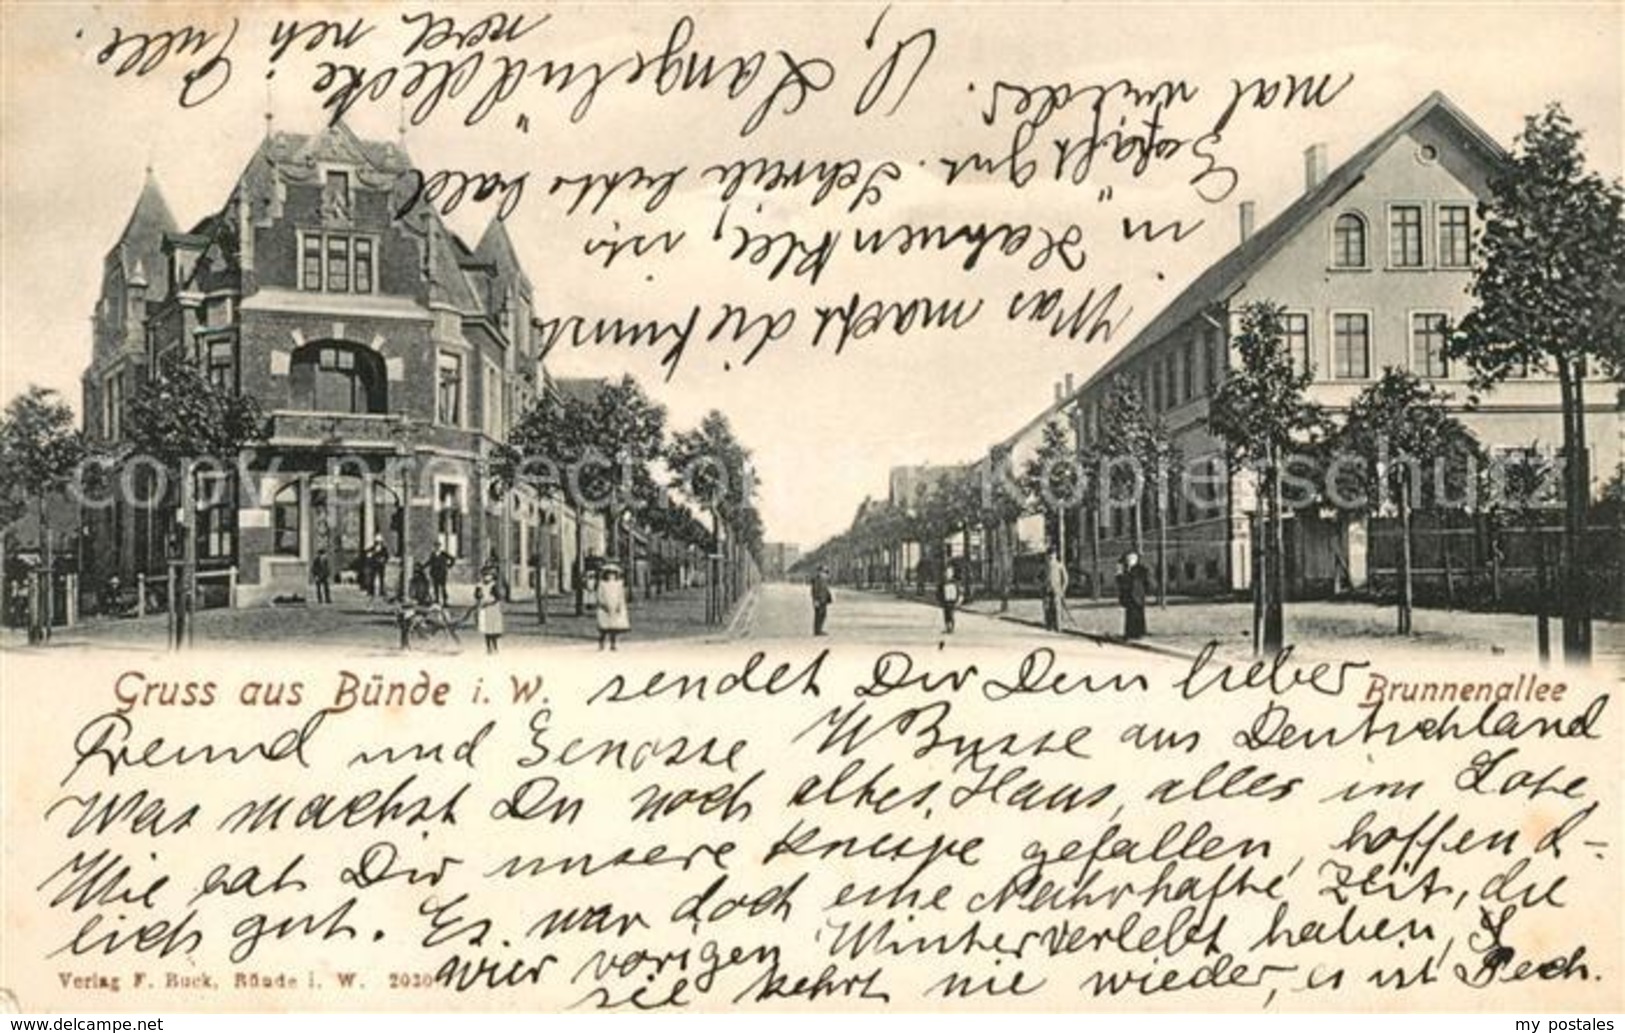 Gruss aus Bünde i. W. sendet Dir Dein lieber
Brunnenallee
Freund und Genosse W Busse aus Deutschland
Was machst Du noch altes Haus, alles im Lote,
Wie hat Dir unsere Kneipe gefallen, hoffend-
lich gut. Es war doch eine Nahrhafte Zeit, die
wir vorigen Winter verlebt haben,
sie kehrt nie wieder, es ist Pech.
Verlag F. Buck, Bünde i. W. 2030
Was macht die Kunst
in Hahnenklee, is
Geschäft gut. Schreib bald
mal wieder.
Langelüddecke
noch
copyprotection für Kopierschutz
delcampe.net
my_postales